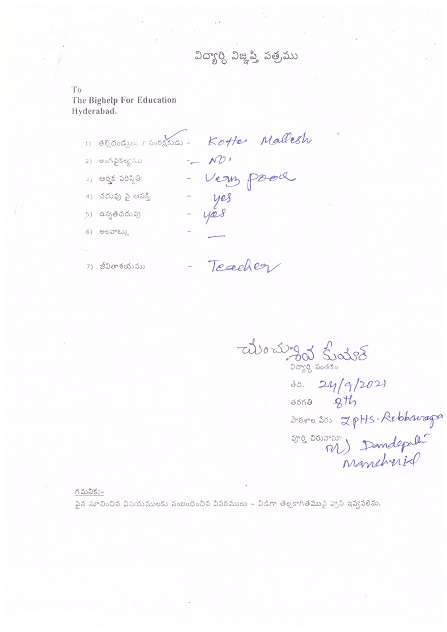 విద్యార్థి విజ్ఞప్తి పత్రము
To
The Bighelp For Education
Hyderabad.
1) తల్లిదండ్రులు / సంరక్షకుడు - Kotte Mallesh
2) అంగవైకల్యము - NO'
3) ఆర్థిక పరిస్థితి - Very poor
4) చదువు పై ఆసక్తి - yes
5) ఉన్నతచదువు - yes
6) అలవాట్లు - —
7) జీవితాశయము - Teacher
శివ కుమార్
విద్యార్థి సంతకం
తేది. 24/9/2021
తరగతి 8th
పాఠశాల పేరు ZPHS-
పూర్తి చిరునామా
M) Dandepalli
Mancherial
గమనిక:-
పైన సూచించిన విషయములకు సంబంధించిన వివరములు - విడిగా తెల్లకాగితముపై వ్రాసి ఇవ్వవలెను.